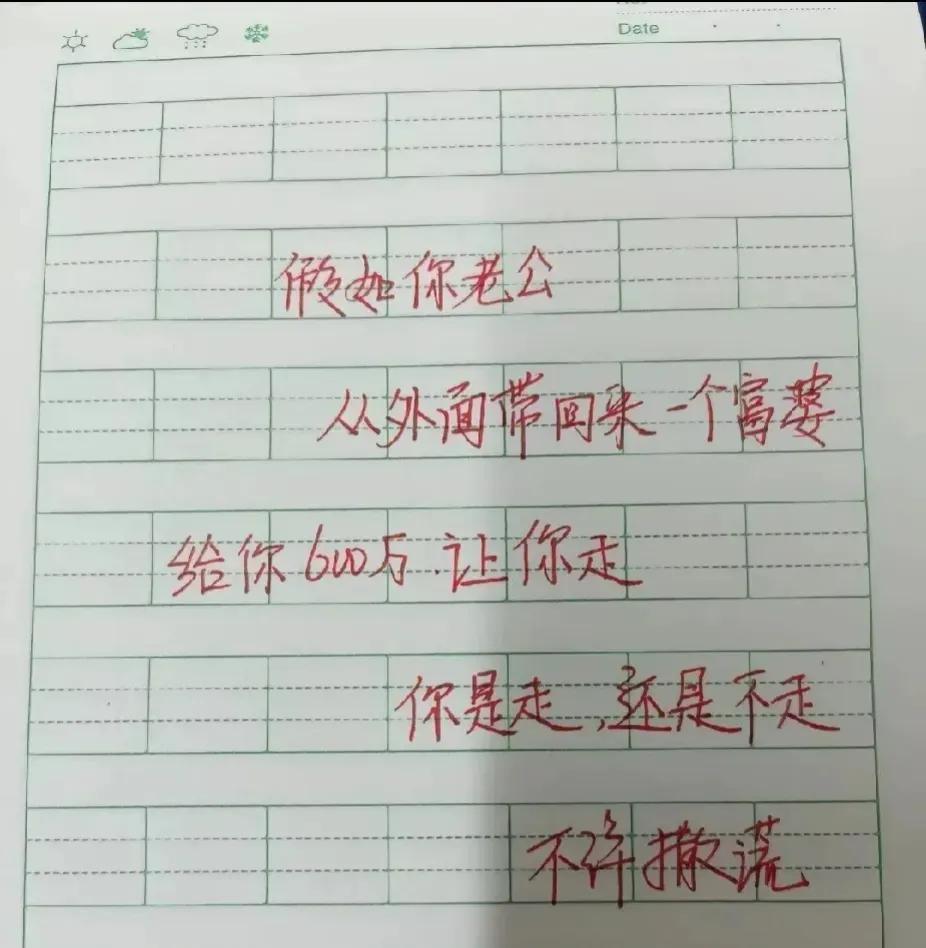 Date
假如你老公
从外面带回来一个富婆
给你600万.让你走
你是走,还是不走
不许撒谎